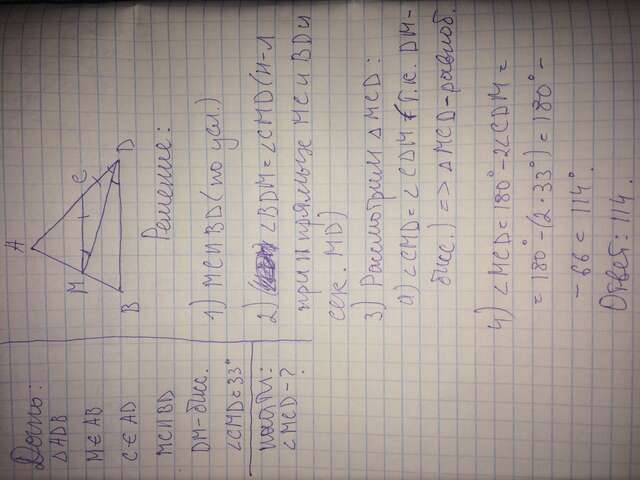 Дано:
△ADB
M∈AB
C∈AD
MC∥BD
DM-бисс.
∠CMD=33°
Найти:
∠MCD-?
A
M
C
B
D
Решение:
1) MC∥BD (по усл.)
2) ∠BDM=∠CMD (н-л
при ∥ прямых MC и BD и
сек. MD)
3) Рассмотрим △MCD:
а) ∠CMD=∠CDM (т.к. DM-
бисс.) => △MCD-равноб.
4) ∠MCD=180°-2∠CDM=
=180°-(2·33°)=180°-
-66=114°.
Ответ: 114.